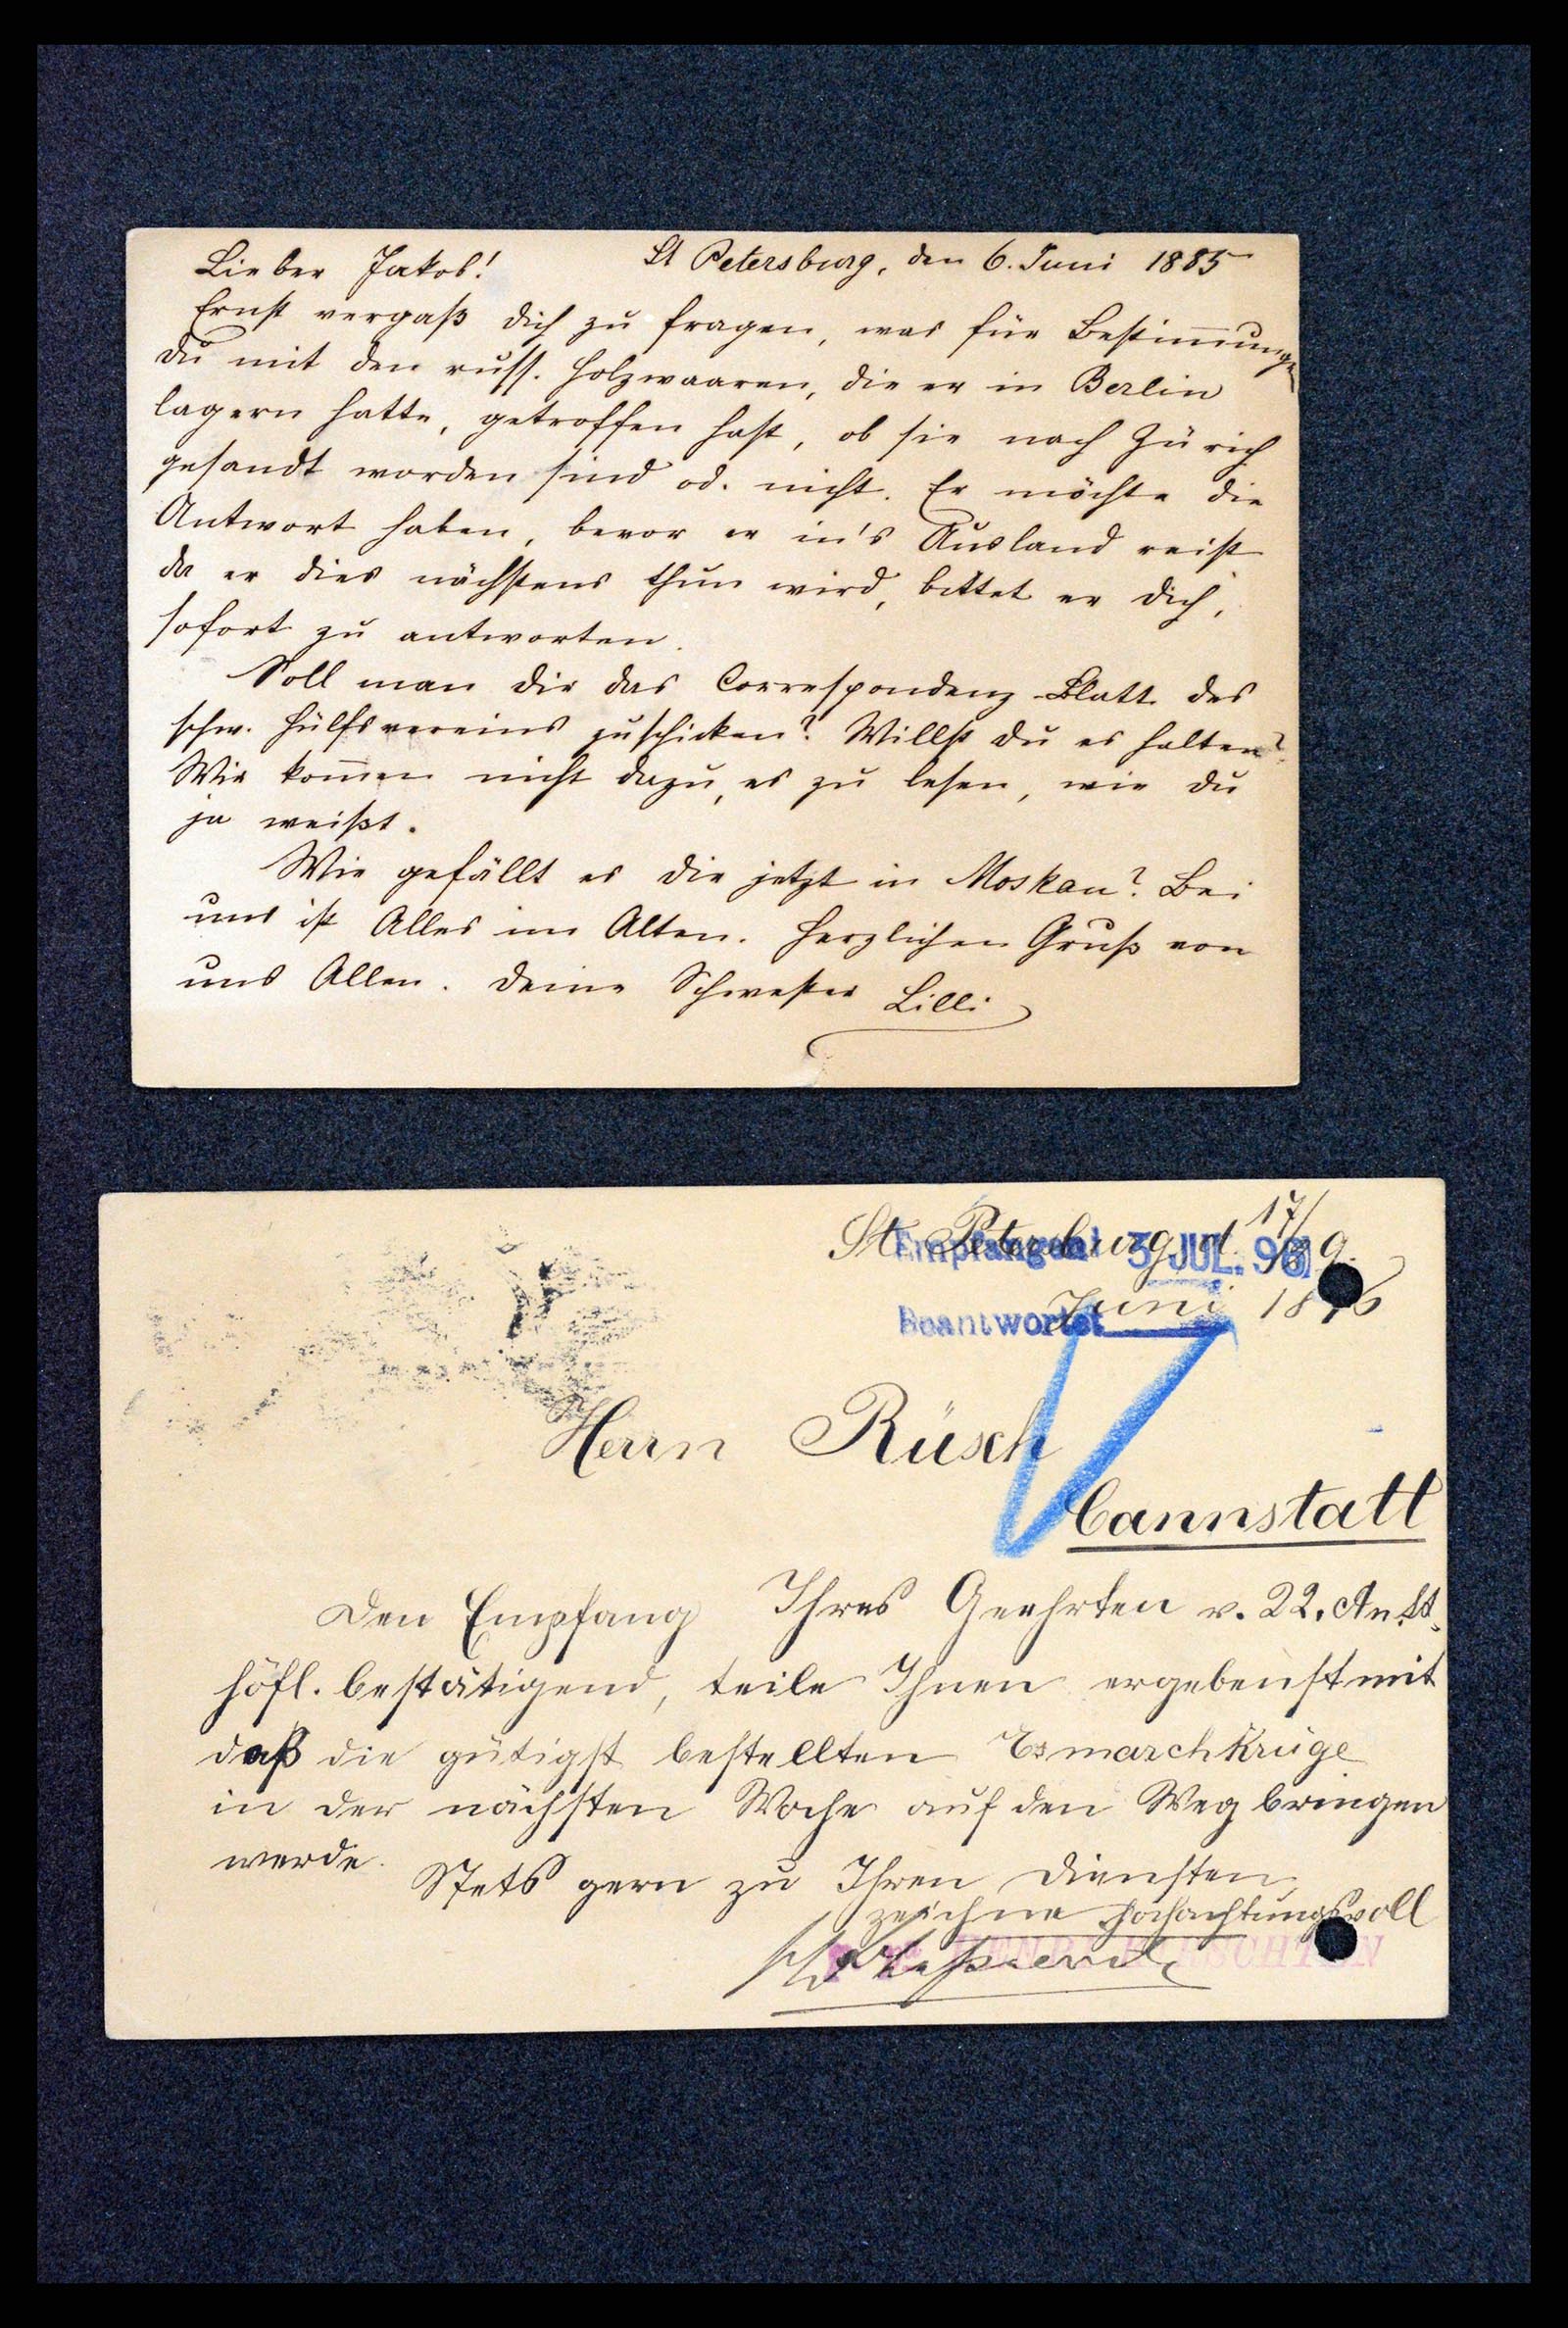 Lieber Jakob! St Petersburg, den 6. Juni 1885
Ernst vergaß dich zu fragen, was für Bestim̄ungen
du mit den russ. Holzwaaren, die er in Berlin
lagern hatte, getroffen hast, ob sie nach Zürich
gesandt worden sind od. nicht. Er möchte die
Antwort haben, bevor er in's Ausland reist
da er dies nächstens thun wird, bittet er dich,
sofort zu antworten.
Soll man dir das Correspondenz-Blatt des
schw. Hülfsvereins zuschicken? Willst du es halten?
Wir kom̄en nicht dazu, es zu lesen, wie du
ja weißt.
Wie gefällt es dir jetzt in Moskau? Bei
uns ist Alles im Alten. Herzlichen Gruß von
uns Allen. Deine Schwester Lilli
St. Petersburg d 17/29.
Juni 1896
Empfangen 3 JUL. 96
Beantwortet
Herrn Rüsch
Cannstatt
Den Empfang Ihres Geehrten v. 22.
höfl. bestätigend, teile Ihnen ergebenst mit
daß die gütigst bestellten Esmarchkrüge
in der nächsten Woche auf den Weg bringen
werde.
Stets gern zu Ihren Diensten,
zeichne Hochachtungsvoll